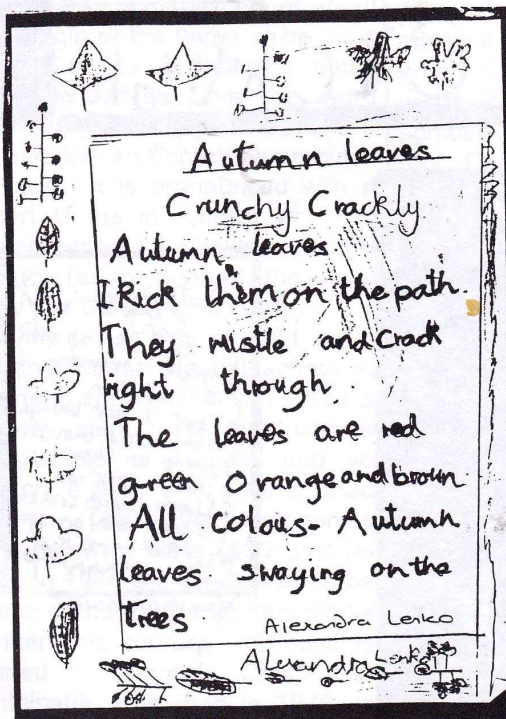 Autumn leaves
Crunchy Crackly
Autumn leaves
I kick them on the path.
They rustle and Crack
right through.
The leaves are red
green Orange and brown
All colous. Autumn
leaves swaying on the
trees
Alexandra Lesko
Alexandra Lesko